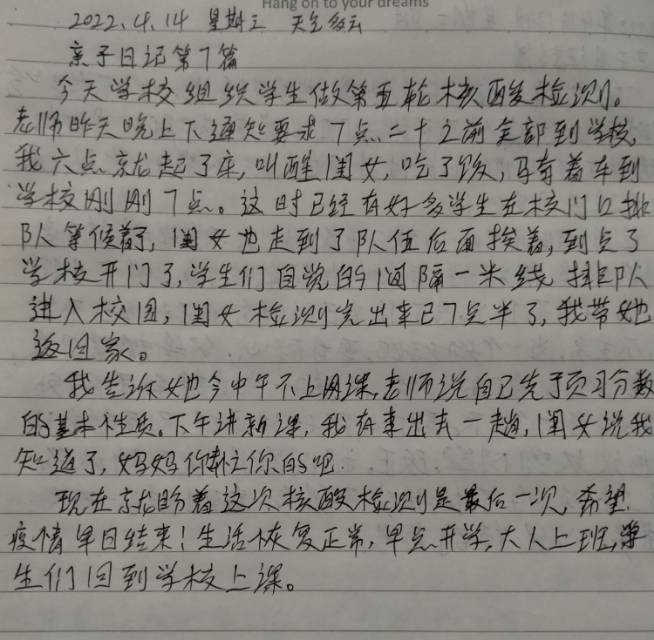 Hang on to your dreams
2022.4.14 星期三 天气多云
亲子日记第7篇
今天学校组织学生做第五轮核酸检测。
老师昨天晚上下通知要求7点二十之前全部到学校,
我六点就起了床,叫醒闺女,吃了饭,骑着车到
学校刚刚7点。这时已经有好多学生在校门口排
队等候着了,闺女也走到了队伍后面挨着,到点了
学校开门了,学生们自觉的间隔一米线排队
进入校园,闺女检测完出来已7点半了,我带她
返回家。
我告诉她今中午不上网课,老师说自己先预习分数
的基本性质。下午讲新课,我有事出去一趟,闺女说我
知道了,妈妈你忙你的吧.
现在就盼着这次核酸检测是最后一次,希望
疫情早日结束!生活恢复正常,早点开学,大人上班,学
生们回到学校上课。